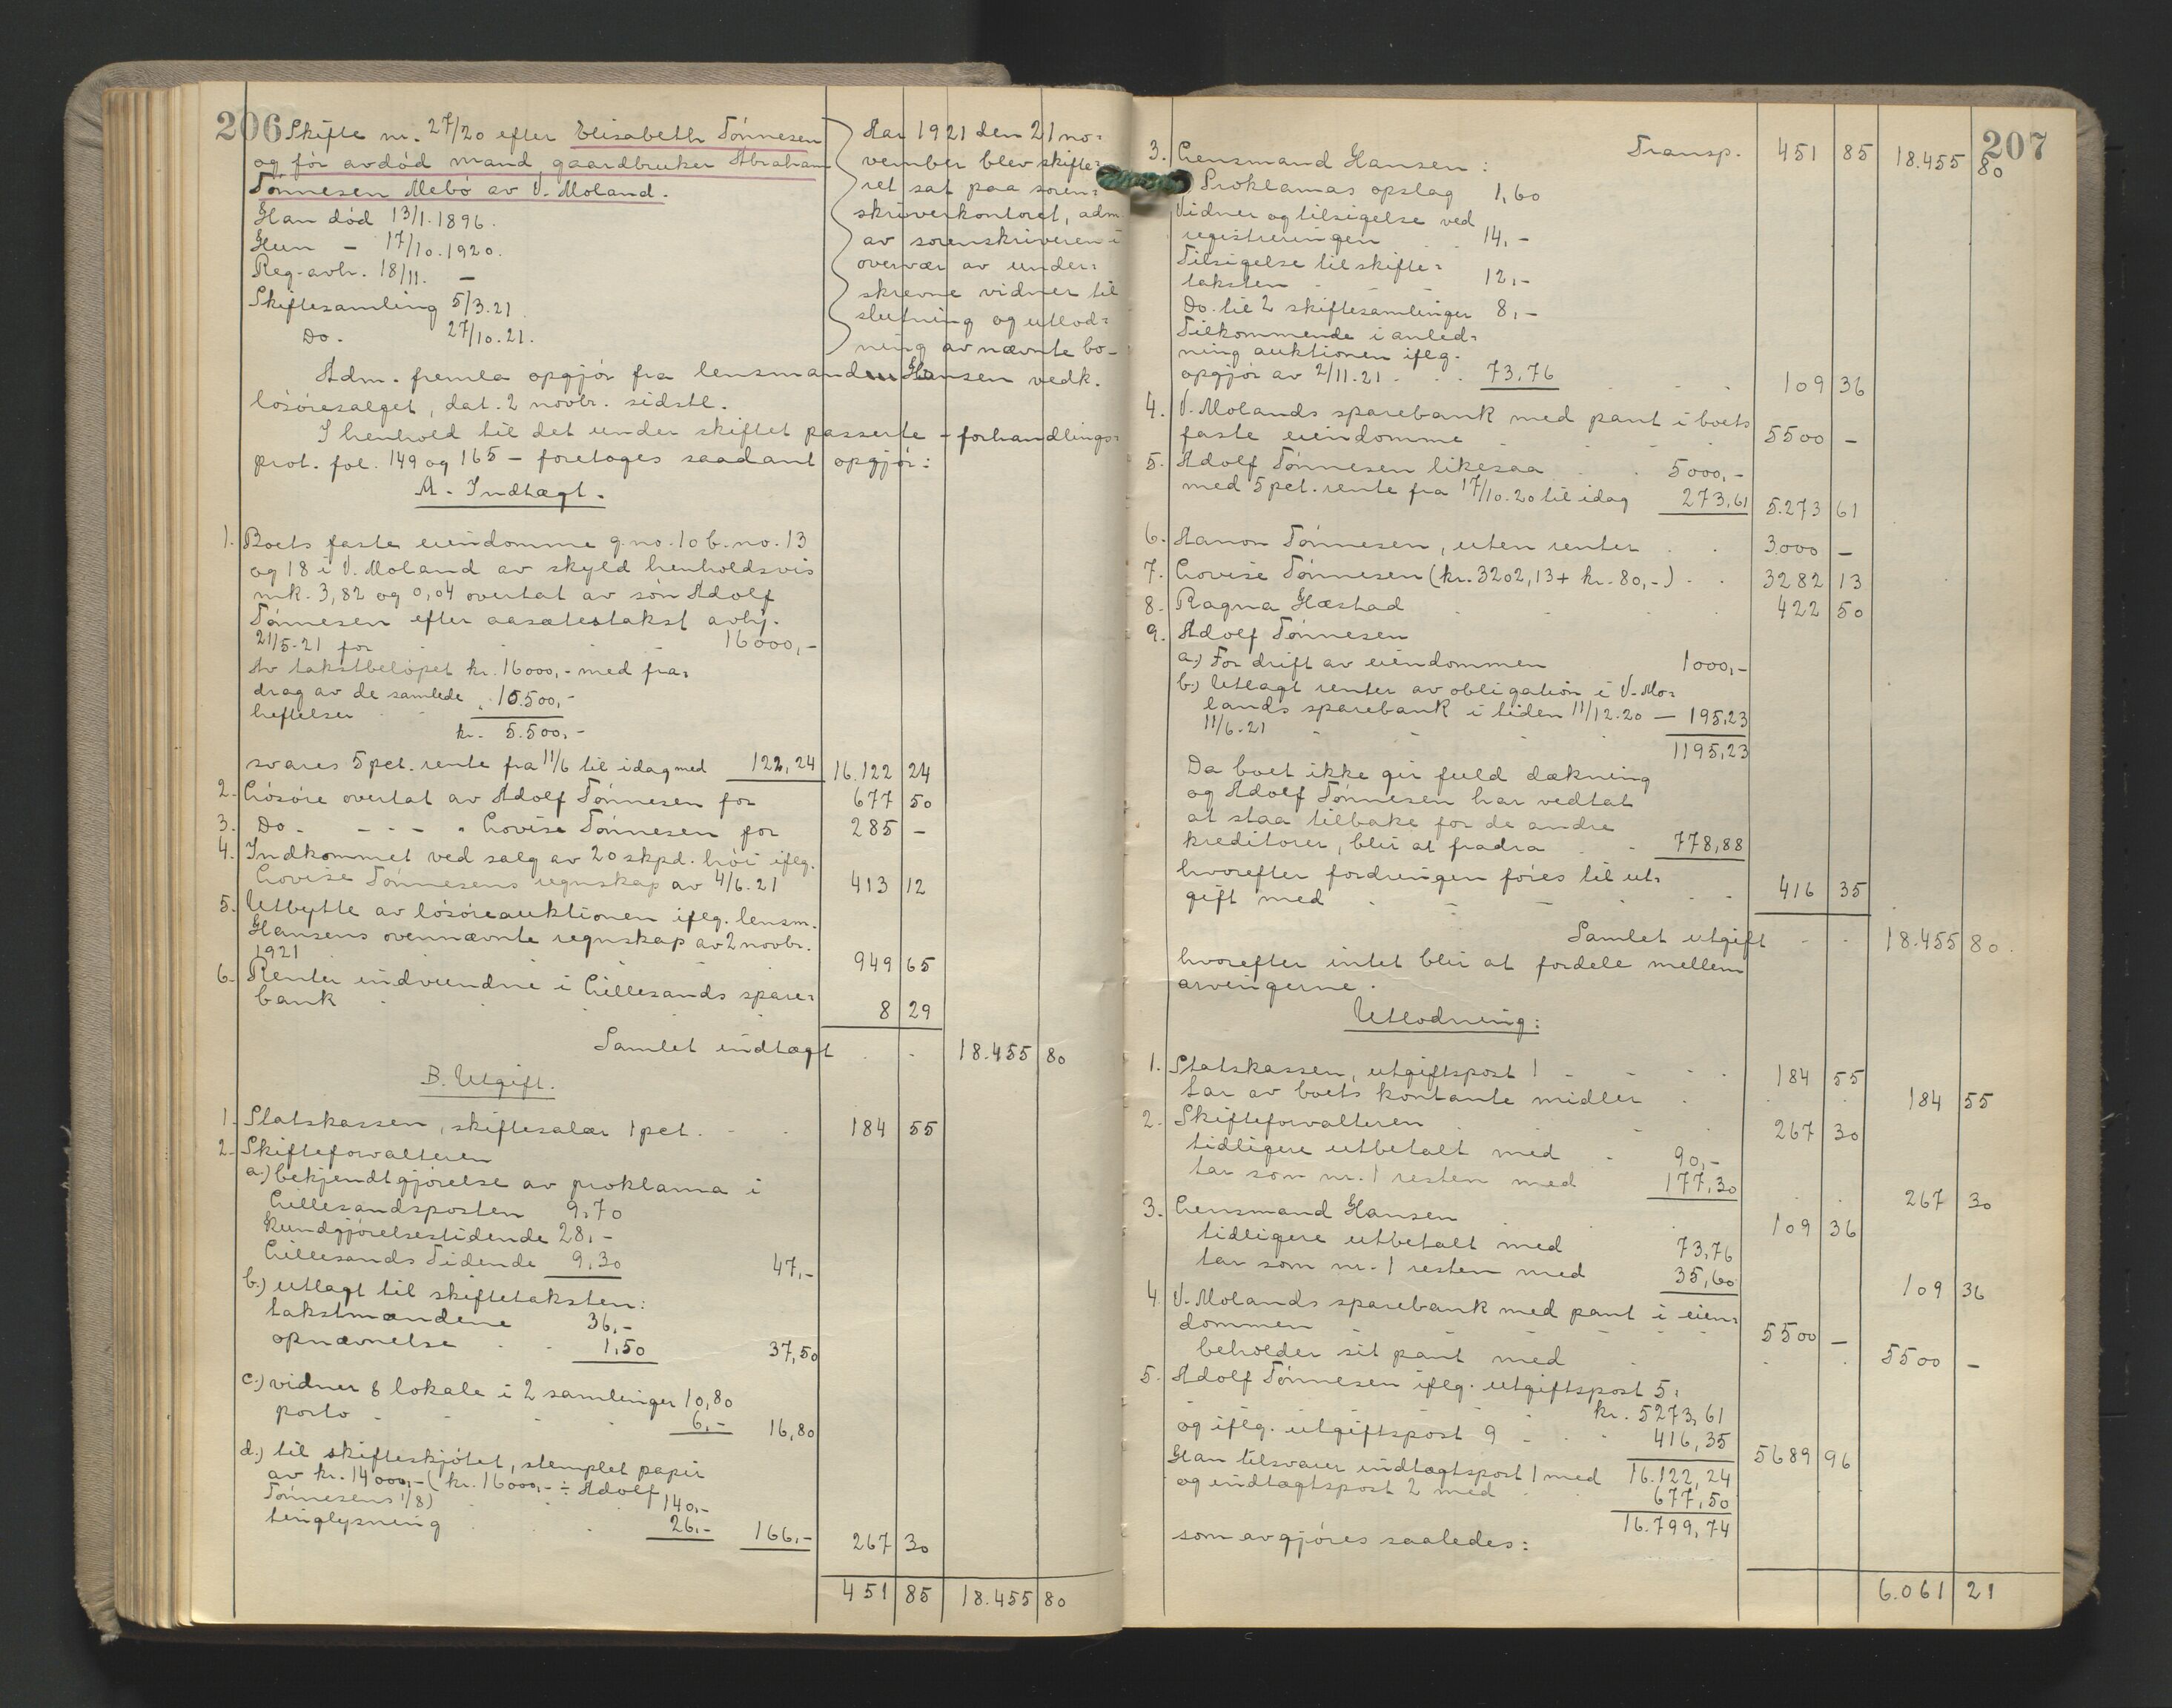 206 Skifte nr. 27/20 efter Elisabeth Tønnesen
og før avdød mand, gaardbruker Abraham
Tønnesen Mebø av V. Moland.
Han død 13/1.1896.
Hun – 17/10.1920.
Reg-avh. 18/11. –
Skiftesamling 5/3.21.
Do. 27/10.21.
Aar 1921 den 21 no-
vember blev skifte-
ret sat paa soren-
skriverkontoret, adm.
av sorenskriveren i
overvær av under-
skrevne vidner til
slutning og utlod-
ning av nævnte bo-
Adm. fremla opgjør fra lensmand Hansen vedk.
løsøresalget, dat. 2 novbr. sidstl.
I henhold til det under skiftet passerte – forhandlings-
prot. fol. 149 og 165 – foretages saadant opgjør:
A. Indtægt.
1. Boets faste eiendomme g.no. 10 b.no. 13
og 18 i V. Moland av skyld henholdsvis
mk. 3,82 og 0,04 overtat av søn Adolf
Tønnesen efter aasætestakst avhj.
21/5-21 for . . . 16000,-
Av takstbeløpet kr. 16000,- med fra-
drag av de samlede „ 10.500,-
heftelser
kr. 5.500,-
svares 5 pct. rente fra 11/6 til idag med 122,24 16.122 24
2. Løsøre overtat av Adolf Tønnesen for 677 50
3. Do. – – – „ Lovise Tønnesen for 285 –
4. Indkommet ved salg av 20 skpd. høi ifølg.
Lovise Tønnesens regnskap av 4/6.21 413 12
5. Utbytte av løsøreauktionen ifølg. lensm.
Hansens ovennævnte regnskap av 2 novbr.
1921 949 65
6. Renter indvundne i Lillesands spare-
bank . . . 8 29
Samlet indtægt . . 18.455 80
B. Utgift.
1. Statskassen, skiftesalær 1 pct. . . 184 55
2. Skifteforvalteren
a.) bekjendtgjørelse av proklama i
Lillesandsposten 9,70
Kundgjørelsestidende 28,-
Lillesands Tidende 9,30 47,-
b.) utlagt til skiftetaksten:
takstmændene 36,-
opnævnelse . . 1,50 37,50
c.) vidner & lokale i 2 samlinger 10,80
porto . . . 6,- 16,80
d.) til skifteskjøtet, stemplet papir
av kr. 14000,- (kr. 16000,- ÷ Adolf
Tønnesens 1/8) . . 140,-
tinglysning . . 26,- 166,- 267 30
451 85 18.455 80
207
Transp. 451 85 18.455 80
3. Lensmand Hansen:
Proklamas opslag 1,60
Vidner og tilsigelse ved
registreringen . . 14,-
Tilsigelse til skifte-
taksten – – – 12,-
Do. til 2 skiftesamlinger 8,-
Tilkommende i anled-
ning auktionen ifølg.
opgjør av 2/11.21 . . . 73,76 . . . 109 36
4. V. Molands sparebank med pant i boets
faste eiendomme . . . 5500 –
5. Adolf Tønnesen likesaa . . 5000,-
med 5 pct. rente fra 17/10.20 til idag 273,61 5.273 61
6. Aanon Tønnesen, uten renter . . 3000 –
7. Lovise Tønnesen (kr. 3202,13 + kr. 80,-) . . 3282 13
8. Ragna Hæstad . . . 422 50
9. Adolf Tønnesen
a.) For drift av eiendommen 1000,-
b.) Utlagt renter av obligation i V. Mo-
lands sparebank i tiden 11/12.20 – 195,23
11/6.21 . . .
1195,23
Da boet ikke gir fuld dækning
og Adolf Tønnesen har vedtat
at staa tilbake for de andre
kreditorer, blir at fradra . . 778,88
hvorefter fordringen føres til ut-
gift med . . . 416 35
Samlet utgift . . 18.455 80.
hvorefter intet blir at fordele mellem
arvingerne.
Utlodning:
1. Statskassen, utgiftspost 1 – – . . 184 55
tar av boets kontante midler . . . 184 55
2. Skifteforvalteren . . . 267 30
tidligere utbetalt med . 90,-
tar som nr. 1 resten med 177,30 . . 267 30
3. Lensmand Hansen . . 109 36
tidligere utbetalt med 73,76
tar som nr. 1 resten med 35,60 109 36
4. V. Molands sparebank med pant i eien-
dommen . . . 5500 –
beholder sit pant med . . . 5500 –
5. Adolf Tønnesen ifølg. utgiftspost 5:
kr. 5273,61
og ifølg. utgiftspost 9 – . . 416,35 5689 96
Han tilsvarer indtægtspost 1 med 16.122,24
og indtægtspost 2 med . . 677,50
16.799,74
som avgjøres saaledes:
6.061 21